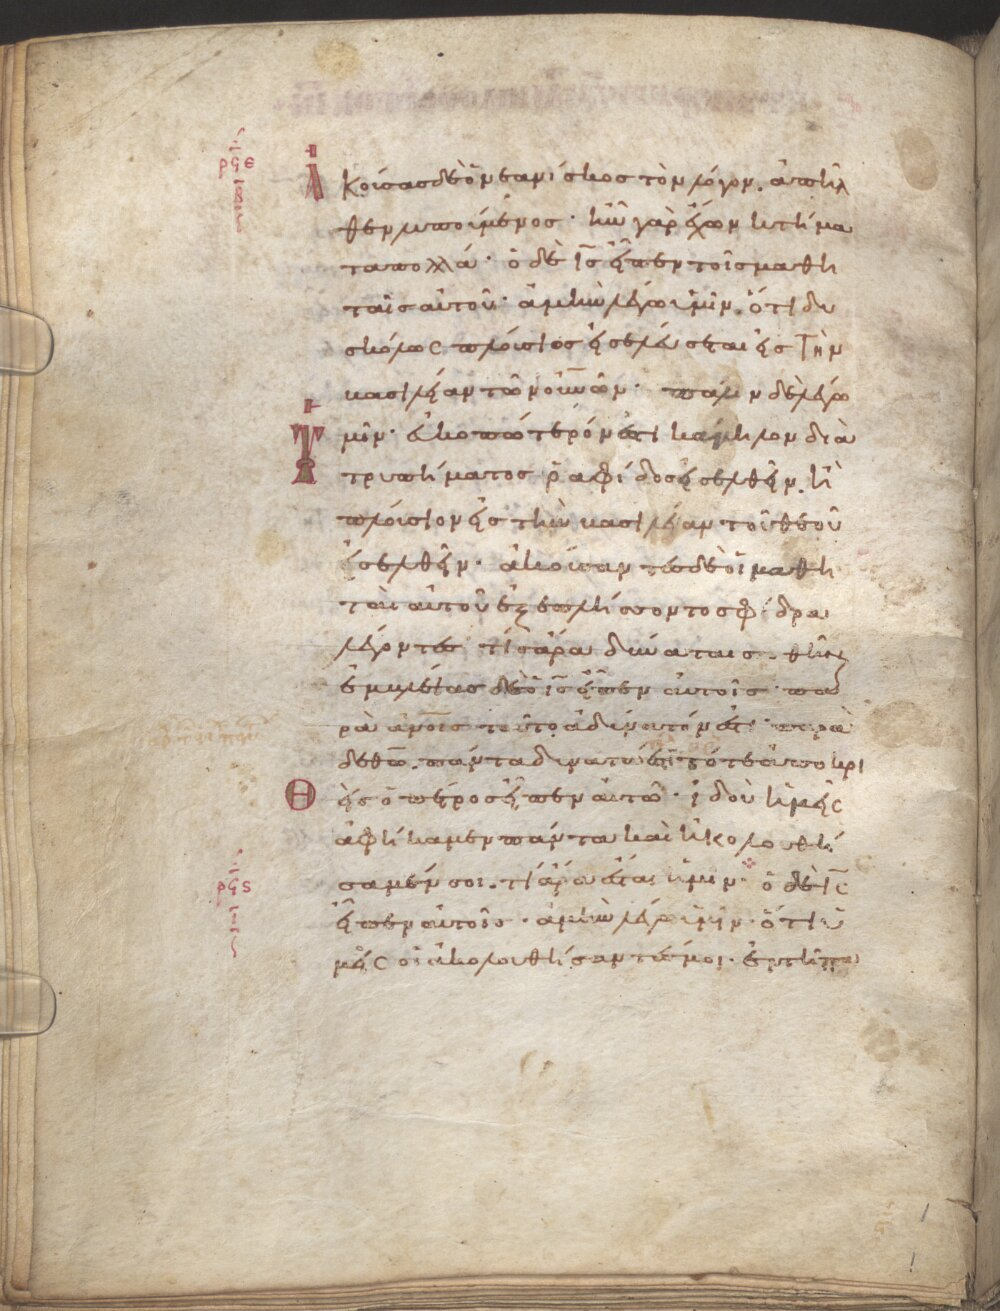 ρϟε
β
Ἀκούσας δὲ ὁ νεανίσκος τὸν λόγον. ἀπῆλ
θεν λυπούμενος· ἦν γὰρ ἔχων κτήμα
τα πολλά· ὁ δὲ ι̅ς̅ εἶπεν τοῖς μαθη
ταῖς αὐτοῦ· ἀμὴν λέγω ὑμῖν. ὅτι δυ
σκόλως πλούσιος εἰσελεύσεται εἰς τὴν
βασιλείαν τῶν ου̅νω̅ν· πάλιν δὲ λέγω
ὑμῖν· εὐκοπώτερόν ἐστι κάμηλον διὰ
τρυπήματος ῥαφίδος εἰσελθεῖν. ἢ
πλούσιον εἰς τὴν βασιλείαν τοῦ θεοῦ
εἰσελθεῖν· ἀκούσαντες δὲ οἱ μαθη
ταὶ αὐτοῦ ἐξεπλήσσοντο σφόδρα
λέγοντες τίς ἄρα δύναται σωθῆναι
ἐμβλέψας δὲ ὁ ι̅ς̅ εἶπεν αὐτοῖς· πα
ρὰ α̅νο̅ις τοῦτο ἀδύνατόν ἐστι· παρὰ
δὲ θω̅. πάντα δυνατά ἐστι τότε ἀποκρι
θεὶς ὁ πέτρος εἶπεν αὐτῷ· ἰδοὺ ἡμεῖς
ἀφήκαμεν πάντα καὶ ἠκολουθή
ρϟς
σαμέν σοι. τί ἄρα ἔσται ἡμῖν· ὁ δὲ ι̅ς̅
εἶπεν αὐτοῖς· ἀμὴν λέγω ὑμῖν· ὅτι ὑ
μεῖς οἱ ἀκολουθήσαντές μοι· ἐν τῇ πα